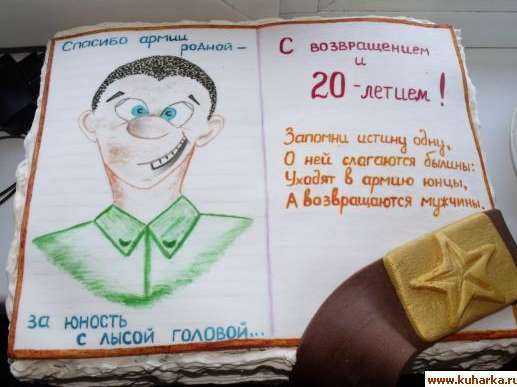 Спасибо армии
родной –
за юность
с лысой головой...
С возвращением
и
20-летием!
Запомни истину одну,
О ней слагаются былины:
Уходят в армию юнцы,
А возвращаются мужчины.
www.kuharka.ru